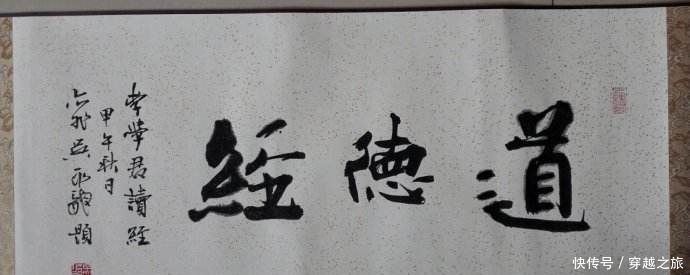 道德經
李學君讀經
甲午秋日
題
快传号 / 穿越之旅